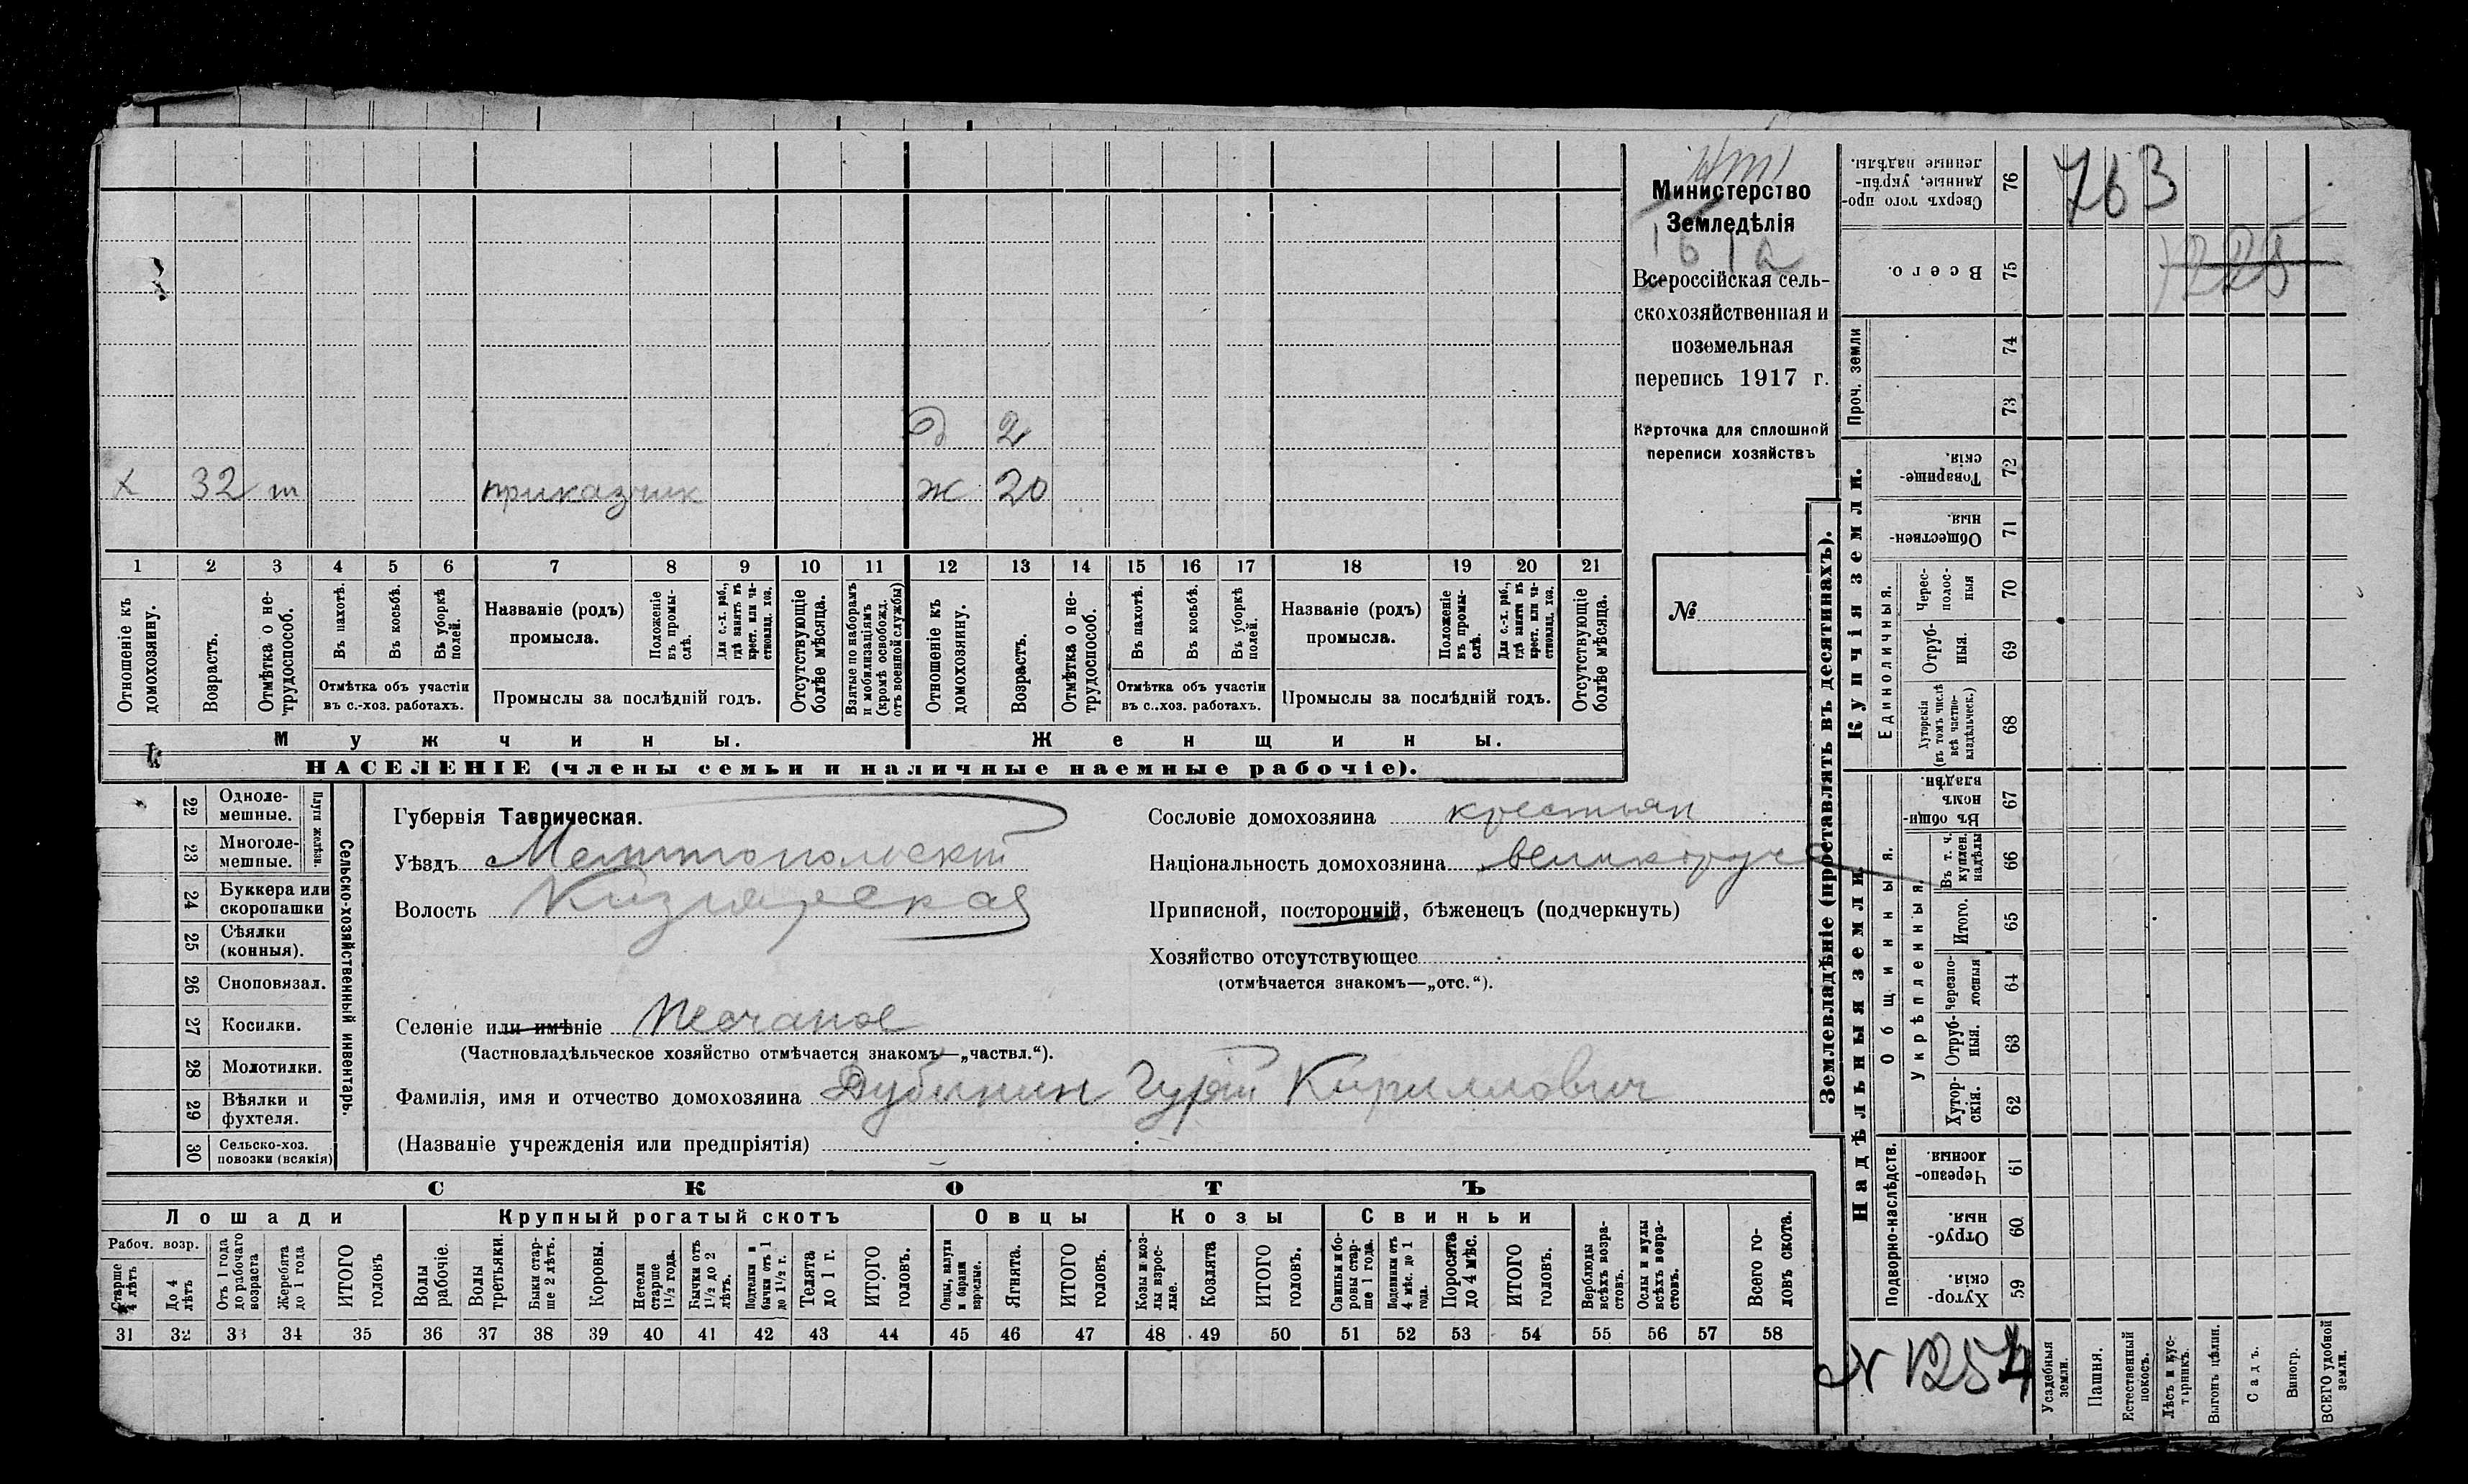 Министерство
Земледѣлія
Всероссійская сель-
скохозяйственная и
поземельная
перепись 1917 г.
Карточка для сплошной
переписи хозяйствъ
№
д 2
х 32 т приказчик ж 20
1 2 3 4 5 6 7 8 9 10 11 12 13 14 15 16 17 18 19 20 21
Отношеніе къ домохозяину.
Возрастъ.
Отмѣтка о не-трудоспособ.
Въ пахотѣ.
Въ косьбѣ.
Въ уборкѣ полей.
Отмѣтка объ участіи
въ с.-хоз. работахъ.
Названіе (родъ)
промысла.
Положеніе въ промы-слѣ.
Для с.-х. раб., гдѣ занятъ въ крест. или ча-стновлад. хоз.
Промыслы за послѣдній годъ.
Отсутствующіе болѣе мѣсяца.
Взятые по наборамъ и мобилизаціямъ (кромѣ освобожд. отъ военной службы)
Отношеніе къ домохозяину.
Возрастъ.
Отмѣтка о не-трудоспособ.
Въ пахотѣ.
Въ косьбѣ.
Въ уборкѣ полей.
Отмѣтка объ участіи
въ с..хоз. работахъ.
Названіе (родъ)
промысла.
Положеніе въ промы-слѣ.
Для с.-х. раб., гдѣ занята въ крест. или ча-стновлад. хоз.
Промыслы за послѣдній годъ.
Отсутствующіе болѣе мѣсяца.
Мужчины.
Женщины.
НАСЕЛЕНІЕ (члены семьи и наличные наемные рабочіе).
Сельско-хозяйственный инвентарь.
Плуги желѣзн.
22 Одноле-
мешные.
23 Многоле-
мешные.
24 Буккера или
скоропашки
25 Сѣялки
(конныя).
26 Сноповязал.
27 Косилки.
28 Молотилки.
29 Вѣялки и
фухтеля.
30 Сельско-хоз.
повозки (всякія)
Губернія Таврическая.
Уѣздъ Мелитопольскій
Волость Кизиярская
Селеніе или имѣніе Песчаное
(Частновладѣльческое хозяйство отмѣчается знакомъ—„частвл.“).
Фамилія, имя и отчество домохозяина Дубинин Гурій Кириллович
(Названіе учрежденія или предпріятія)
Сословіе домохозяина крестьян
Національность домохозяина великорус
Приписной, посторонній, бѣженецъ (подчеркнуть)
Хозяйство отсутствующее
(отмѣчается знакомъ—„отс.“).
СКОТЪ
Лошади
Крупный рогатый скотъ
Овцы
Козы
Свиньи
Рабоч. возр.
Старше 4 лѣтъ
До 4 лѣтъ
Отъ 1 года до рабочаго возраста
Жеребята до 1 года
ИТОГО головъ
Волы рабочіе.
Волы третьяки.
Быки стар-ше 2 лѣтъ.
Коровы.
Нетели старше 1½ года.
Бычки отъ 1½ до 2 лѣтъ.
Подтелки и бычки отъ 1 до 1½ г.
Телята до 1 г.
ИТОГО головъ.
Овцы, валухи и бараны взрослые.
Ягнята.
ИТОГО головъ.
Козы и коз-лы взрос-лые.
Козлята
ИТОГО головъ.
Свиньи и бо-ровы стар-ше 1 года.
Подсвинки отъ 4 мѣс. до 1 года.
Поросята до 4 мѣс.
ИТОГО головъ.
Верблюды всѣхъ возра-стовъ.
Ослы и мулы всѣхъ возра-стовъ.
Всего го-ловъ скота.
31 32 33 34 35 36 37 38 39 40 41 42 43 44 45 46 47 48 49 50 51 52 53 54 55 56 57 58
Землевладѣніе (проставлять въ десятинахъ).
Купчія земли.
Надѣльныя земли.
Проч. земли
Единоличныя.
Общинныя.
Укрѣпленныя.
Подворно-наслѣдств.
76 Сверхъ того про-данные, укрѣп-ленные надѣлы.
75 Всего.
74
73
72 Товарище-скія.
71 Обществен-ныя.
70 Черес-полос-ныя
69 Отруб-ныя.
68 Хуторскія (въ томъ числѣ всѣ частно-владѣльческ.)
67 Въ общи-номъ владѣн.
66 Въ т. ч. куплен. надѣлы
65 Итого.
64 Черезпо-лосныя
63 Отруб-ныя.
62 Хутор-скія.
61 Черезпо-лосныя
60 Отруб-ныя.
59 Хутор-скія.
763
1225
N 1254
Усадебныя земли.
Пашня.
Естественный покосъ.
Лѣсъ и кус-тарникъ.
Выгонъ цѣлин.
Садъ.
Виногр.
ВСЕГО удобной земли.